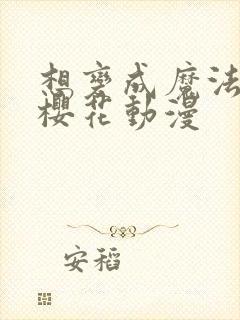 想變成魔法
櫻花動漫
安稻